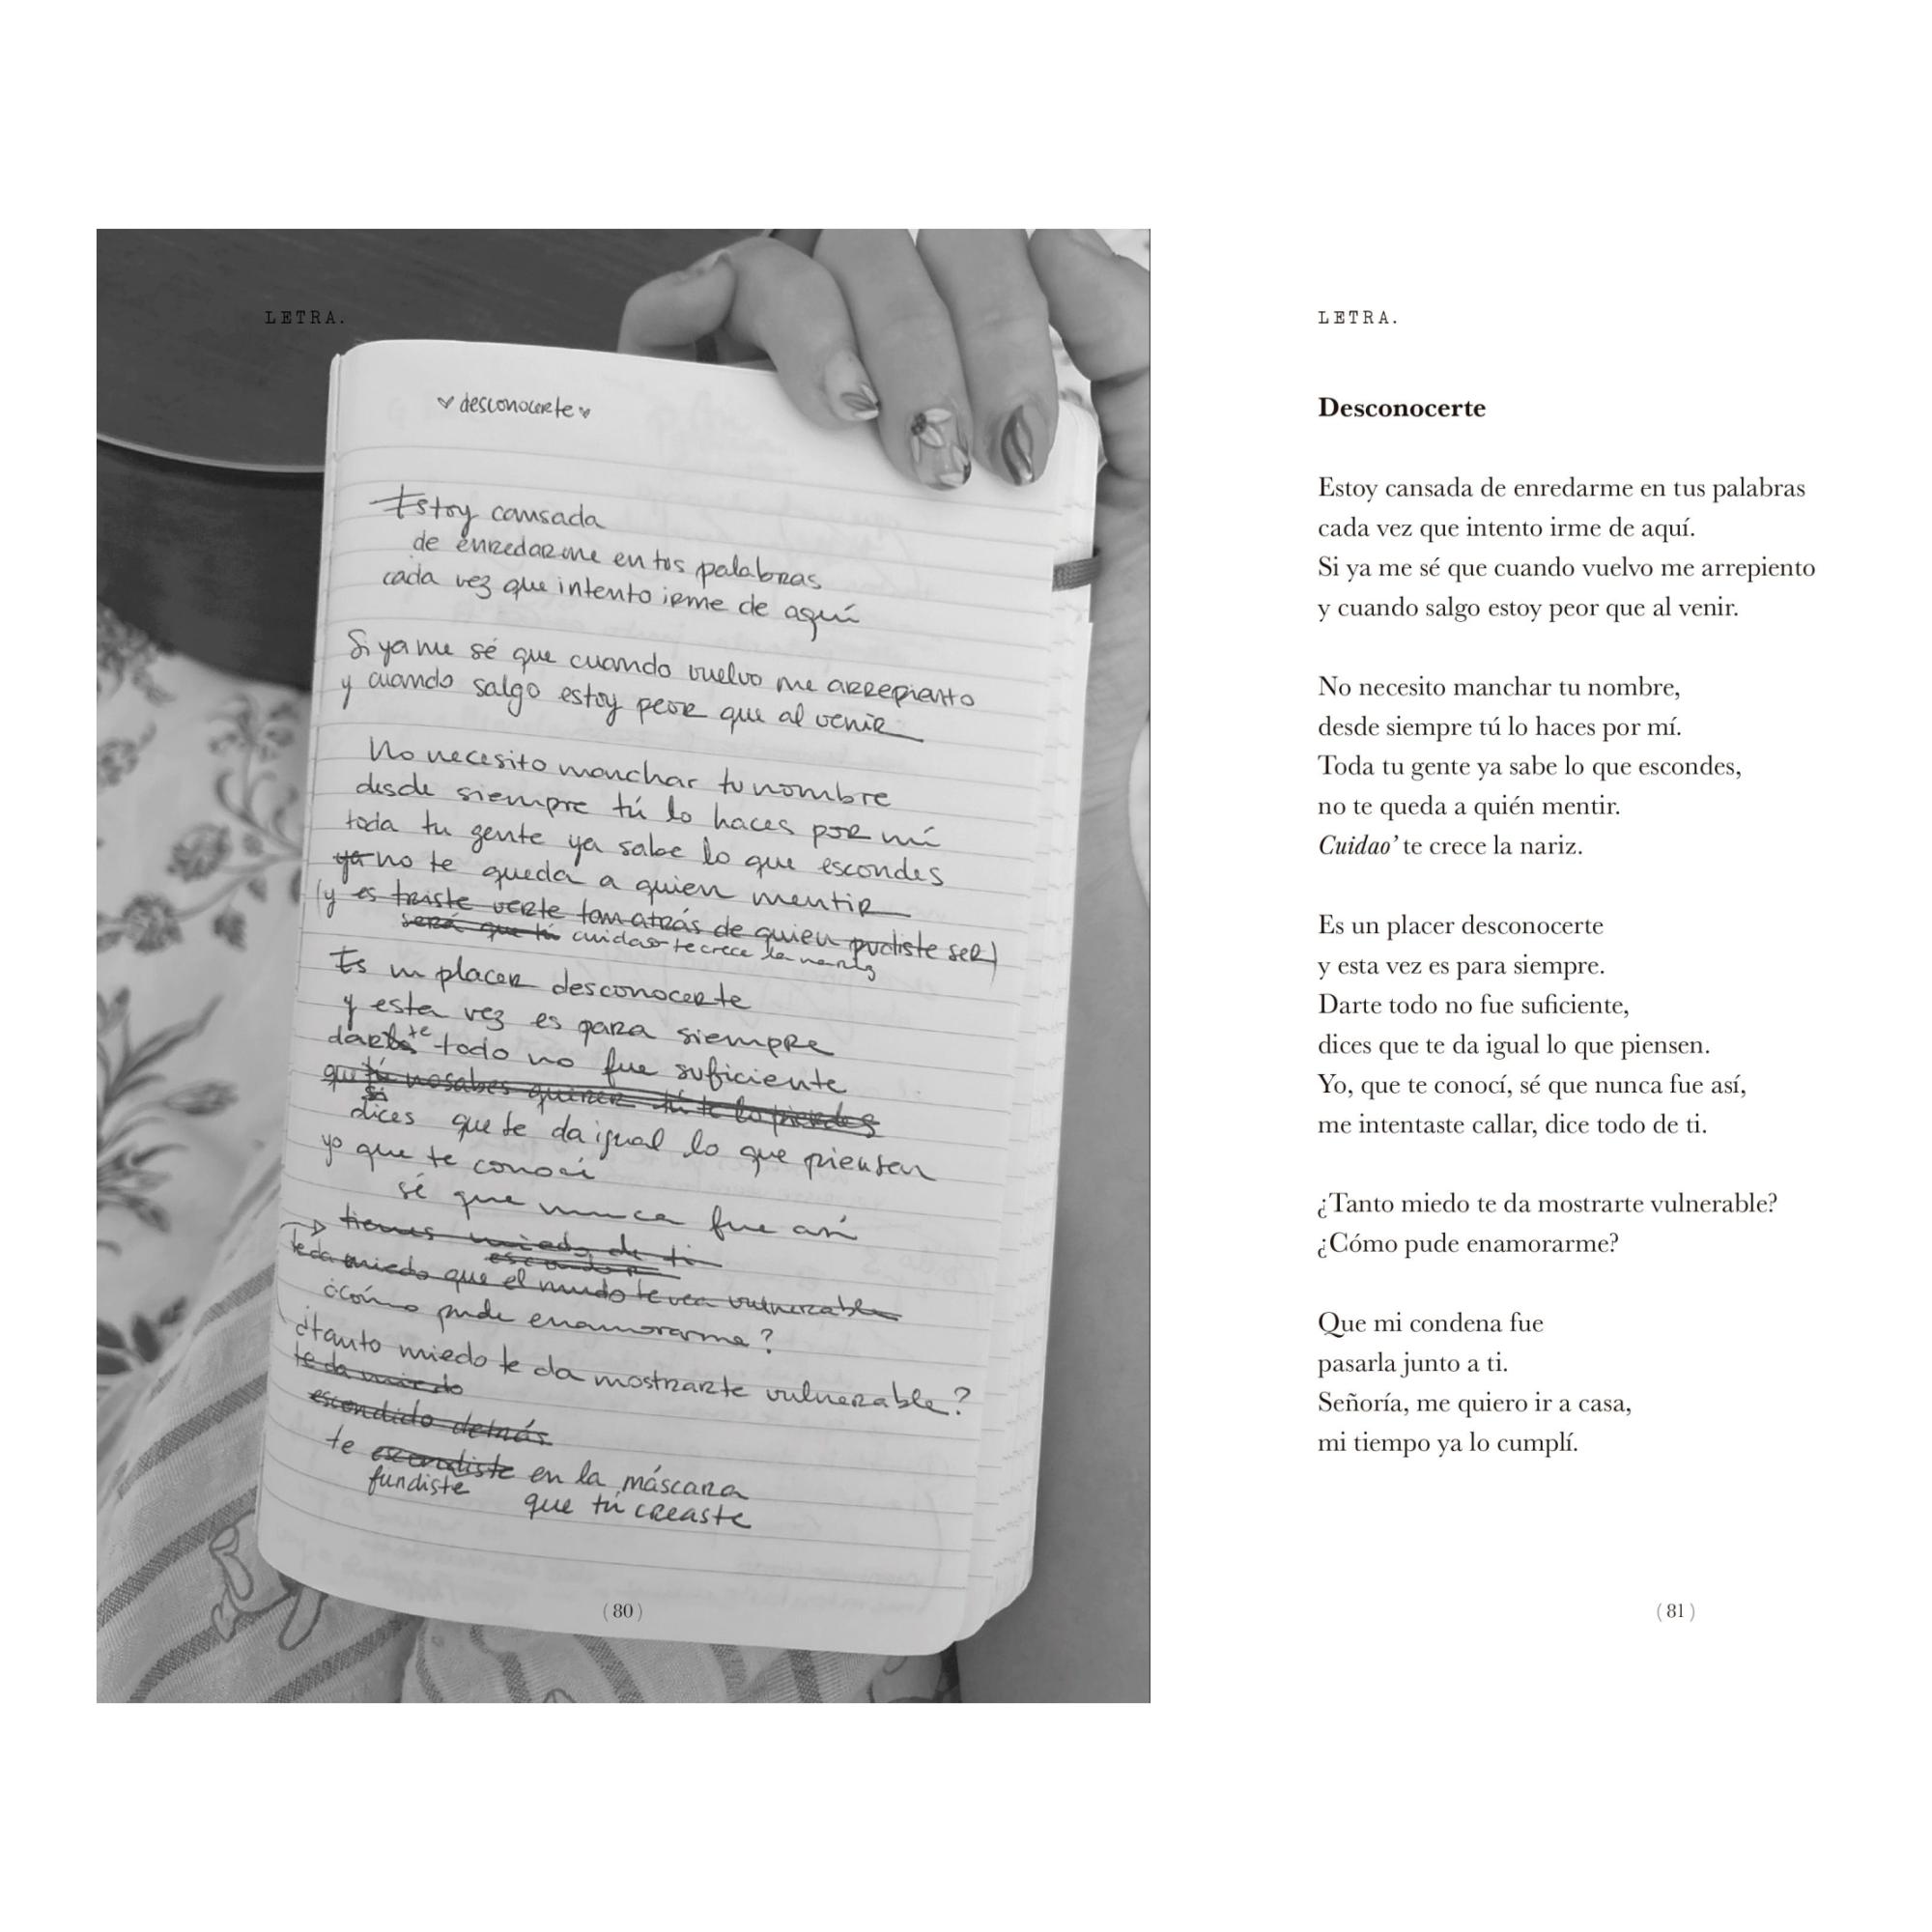 LETRA.
♥ desconocerte ♥
Estoy cansada
de enredarme en tus palabras
cada vez que intento irme de aquí
Si ya me sé que cuando vuelvo me arrepiento
y cuando salgo estoy peor que al venir
No necesito manchar tu nombre
desde siempre tú lo haces por mí
toda tu gente ya sabe lo que escondes
ya no te queda a quien mentir
(y es triste verte tan atrás de quien pudiste ser)
será que tú cuidao te crece la nariz
Es un placer desconocerte
y esta vez es para siempre
darte todo no fue suficiente
que tú no sabes querer tú te lo pierdes
si
dices que te da igual lo que piensen
yo que te conocí
sé que nunca fue así
tienes miedo de ti
esconder
te da miedo que el mundo te vea vulnerable
¿cómo pude enamorarme?
¿tanto miedo te da mostrarte vulnerable?
te da miedo
escondido detrás
te escondiste en la máscara
fundiste que tú creaste
(80)
LETRA.
Desconocerte
Estoy cansada de enredarme en tus palabras
cada vez que intento irme de aquí.
Si ya me sé que cuando vuelvo me arrepiento
y cuando salgo estoy peor que al venir.
No necesito manchar tu nombre,
desde siempre tú lo haces por mí.
Toda tu gente ya sabe lo que escondes,
no te queda a quién mentir.
Cuidao’ te crece la nariz.
Es un placer desconocerte
y esta vez es para siempre.
Darte todo no fue suficiente,
dices que te da igual lo que piensen.
Yo, que te conocí, sé que nunca fue así,
me intentaste callar, dice todo de ti.
¿Tanto miedo te da mostrarte vulnerable?
¿Cómo pude enamorarme?
Que mi condena fue
pasarla junto a ti.
Señoría, me quiero ir a casa,
mi tiempo ya lo cumplí.
(81)